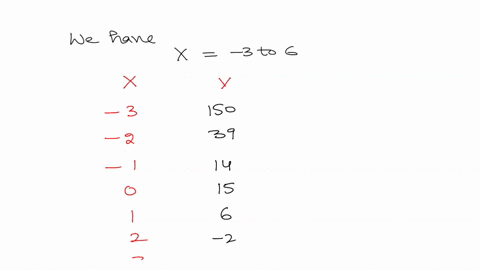 We have
X = -3 to 6
X Y
-3 150
-2 39
-1 14
0 15
1 6
2 -2